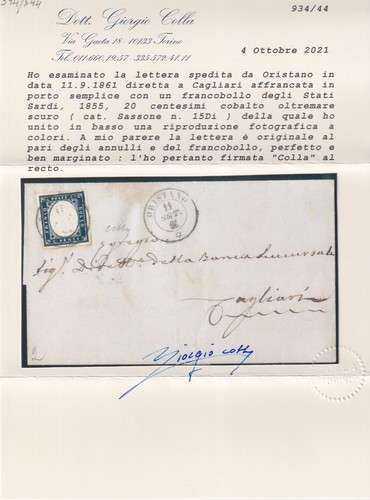 934/44
Dott. Giorgio Colla
Via Gaeta 18 10133 Torino
Tel. 011 660.19.57 - 335 572.41.11
4 Ottobre 2021
Ho esaminato la lettera spedita da Oristano in
data 11.9.1861 diretta a Cagliari affrancata in
porto semplice con un francobollo degli Stati
Sardi, 1855, 20 centesimi cobalto oltremare
scuro ( cat. Sassone n. 15Di ) della quale ho
unito in basso una riproduzione fotografica a
colori. A mio parere la lettera è originale al
pari degli annulli e del francobollo, perfetto e
ben marginato : l'ho pertanto firmata "Colla" al
recto.
ORISTANO
11
SET.
Colla
Sig.r Dirett.e della Banca Succursale
Cagliari
Giorgio Colla